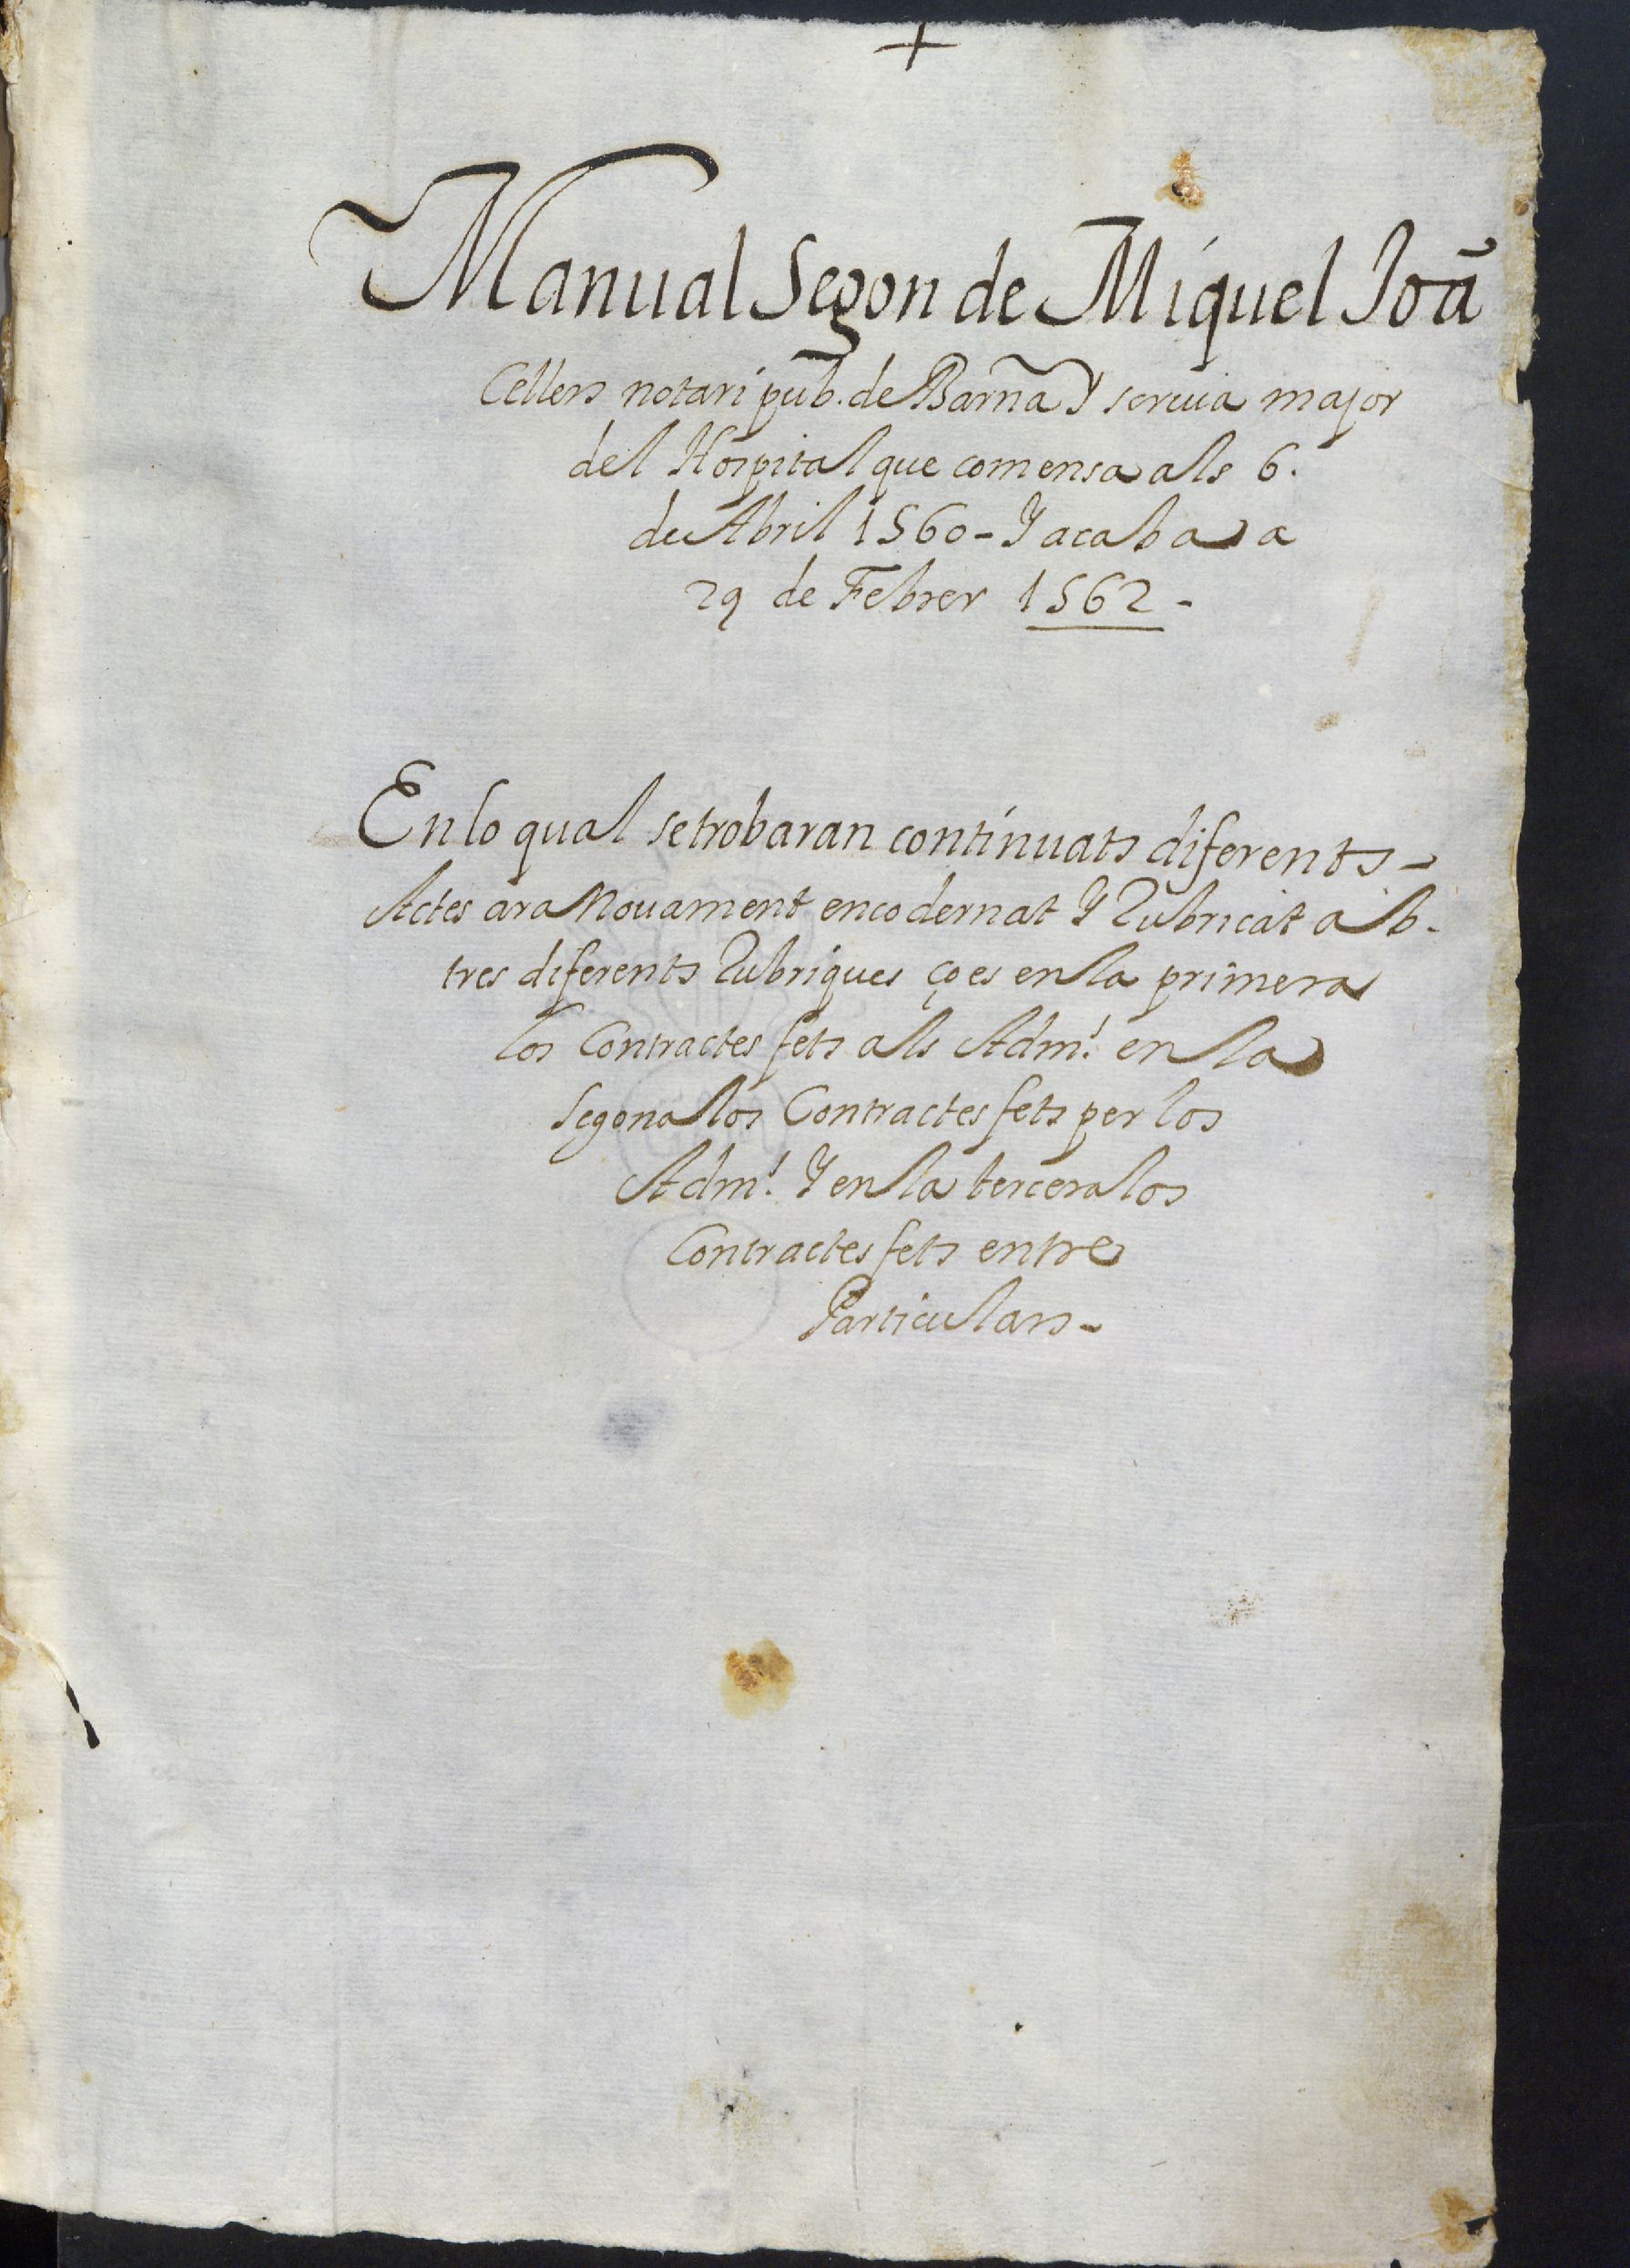 +
Manual Segon de Miquel Joã
Cellers notari pub. de Barña Y scriuia major
del Hospital que comensa als 6.
de Abril 1560 - Y acaba a
29 de Febrer 1562 -
En lo qual se trobaran continuats diferents -
Actes ara Nouament encodernat Y Rubricat ab
tres diferents Rubriques ço es en la primera
los Contractes fets als Adm.ʳˢ en la
Segona los Contractes fets per los
Adm.ʳˢ Y en la tercera los
Contractes fets entre
Particulars -